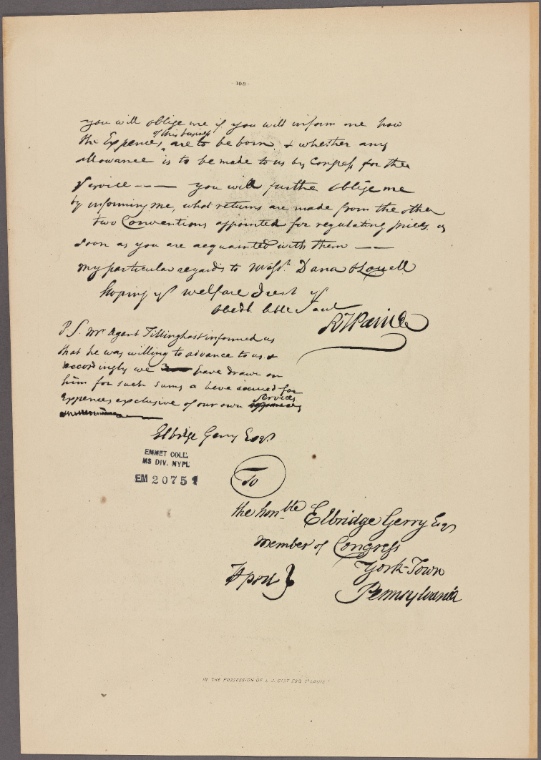 you will oblige me if you will inform me how
of this business
the Expences, are to be born, & whether any
allowance is to be made to us by Congress for the
Service —— you will further oblige me
by informing me, what returns are made from the other
two Conventions appointed for regulating prices as
soon as you are acquainted with them ——
my particular regards to Messrs. Dana & Lovell
hoping yr welfare I rest yr
Obedt Hble Servt
RTPaine
P.S. Mr Agent Tillinghast informed us
that he was willing to advance to us &
accordingly we have drawn on
him for such sums as have accrued for
services
Expences exclusive of our own
Elbridge Gerry Esqr
EMMET COLL.
MS DIV. NYPL
EM 20751
To
the honble Elbridge Gerry Esqr
Member of Congress
York-Town
Pennsylvania
IN THE POSSESSION OF